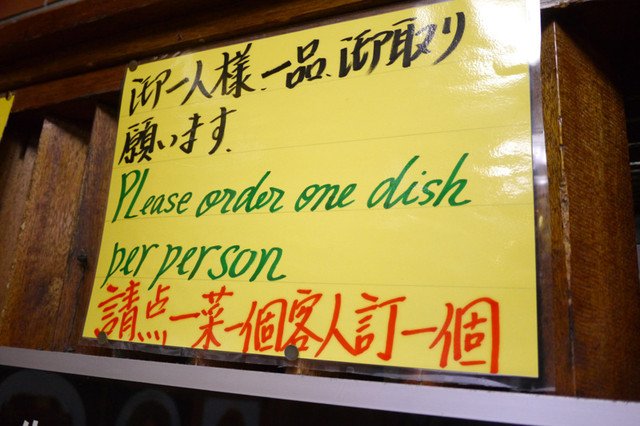 御一人様.一品.御取り
願います.
PLease order one dish
per person
請点一菜一個客人訂一個